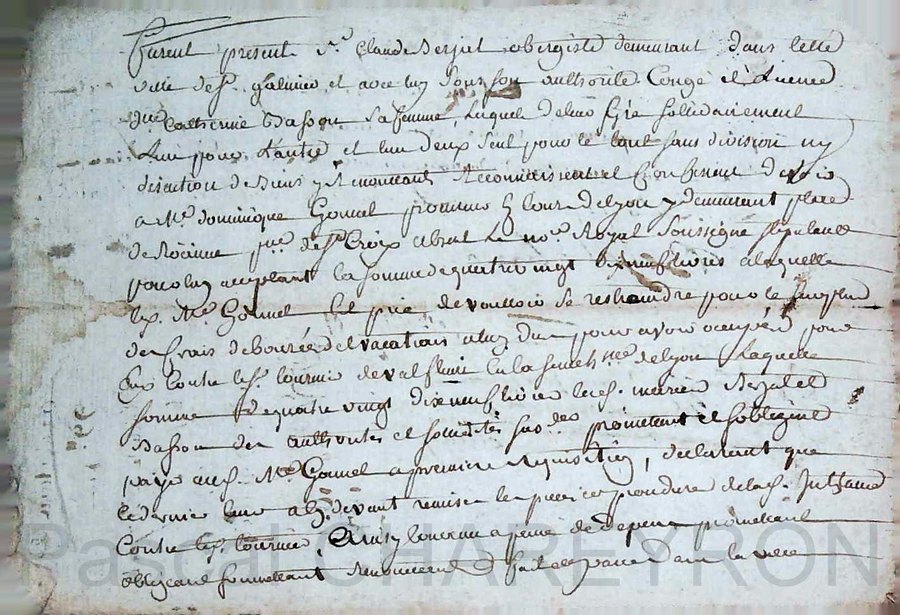 furent present Sr. Claude Berjat obergiste demeurant dans cette
ville de St. galmier et avec luy sous son authorité Congé et Licence
dlle Catherine Basson sa femme, lesquels de leur gré sollidairement
l'un pour l'autre et l'un deux seul pour le tout sans division ny
discution de biens y Renonceant Reconnaissent et Confessent devoir
a Me. dominique Gonnel procureur ez cours de lyon y demeurant place
de Roanne psse. de Ste Croix absent Le nore. Royal soussigné stipulant
pour luy acceptant la somme de quatre vingt dix neuf livres a laquelle
led. Me. Gonnel bel prié de vouloir se restraindre pour le
des frais debourcés et vacations a luy dus pour avoir occupéé pour
Eux Contre le Sr. tournier de valfleury en la senechssée de lyon laquelle
somme de quatre vingt dix neuf livres lesd. mariés Berjat et
Basson des authorités et sollidités susdes. promettent et sobligent
payer aud. Me. Gonnel a premiere Requisition, declarant que
le dernier leur a cy devant remise les pieces et procedure de lad. Instance
Contre led. tournier, Ainsy Convenu a peine de depens promettant
obligeant soumettant Renonceant & fait et passé dans la ville
Pascal CHAREYRON